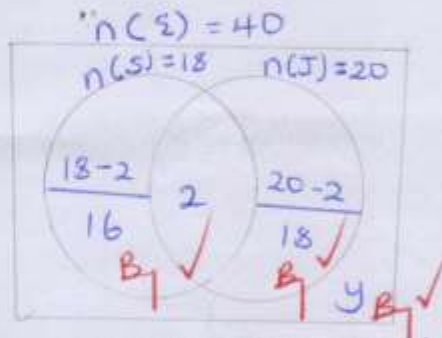 n(ξ) = 40
n(S) = 18 n(J) = 20
18-2 2 20-2
16 18
B1 ✓ B1 ✓ y B1 ✓